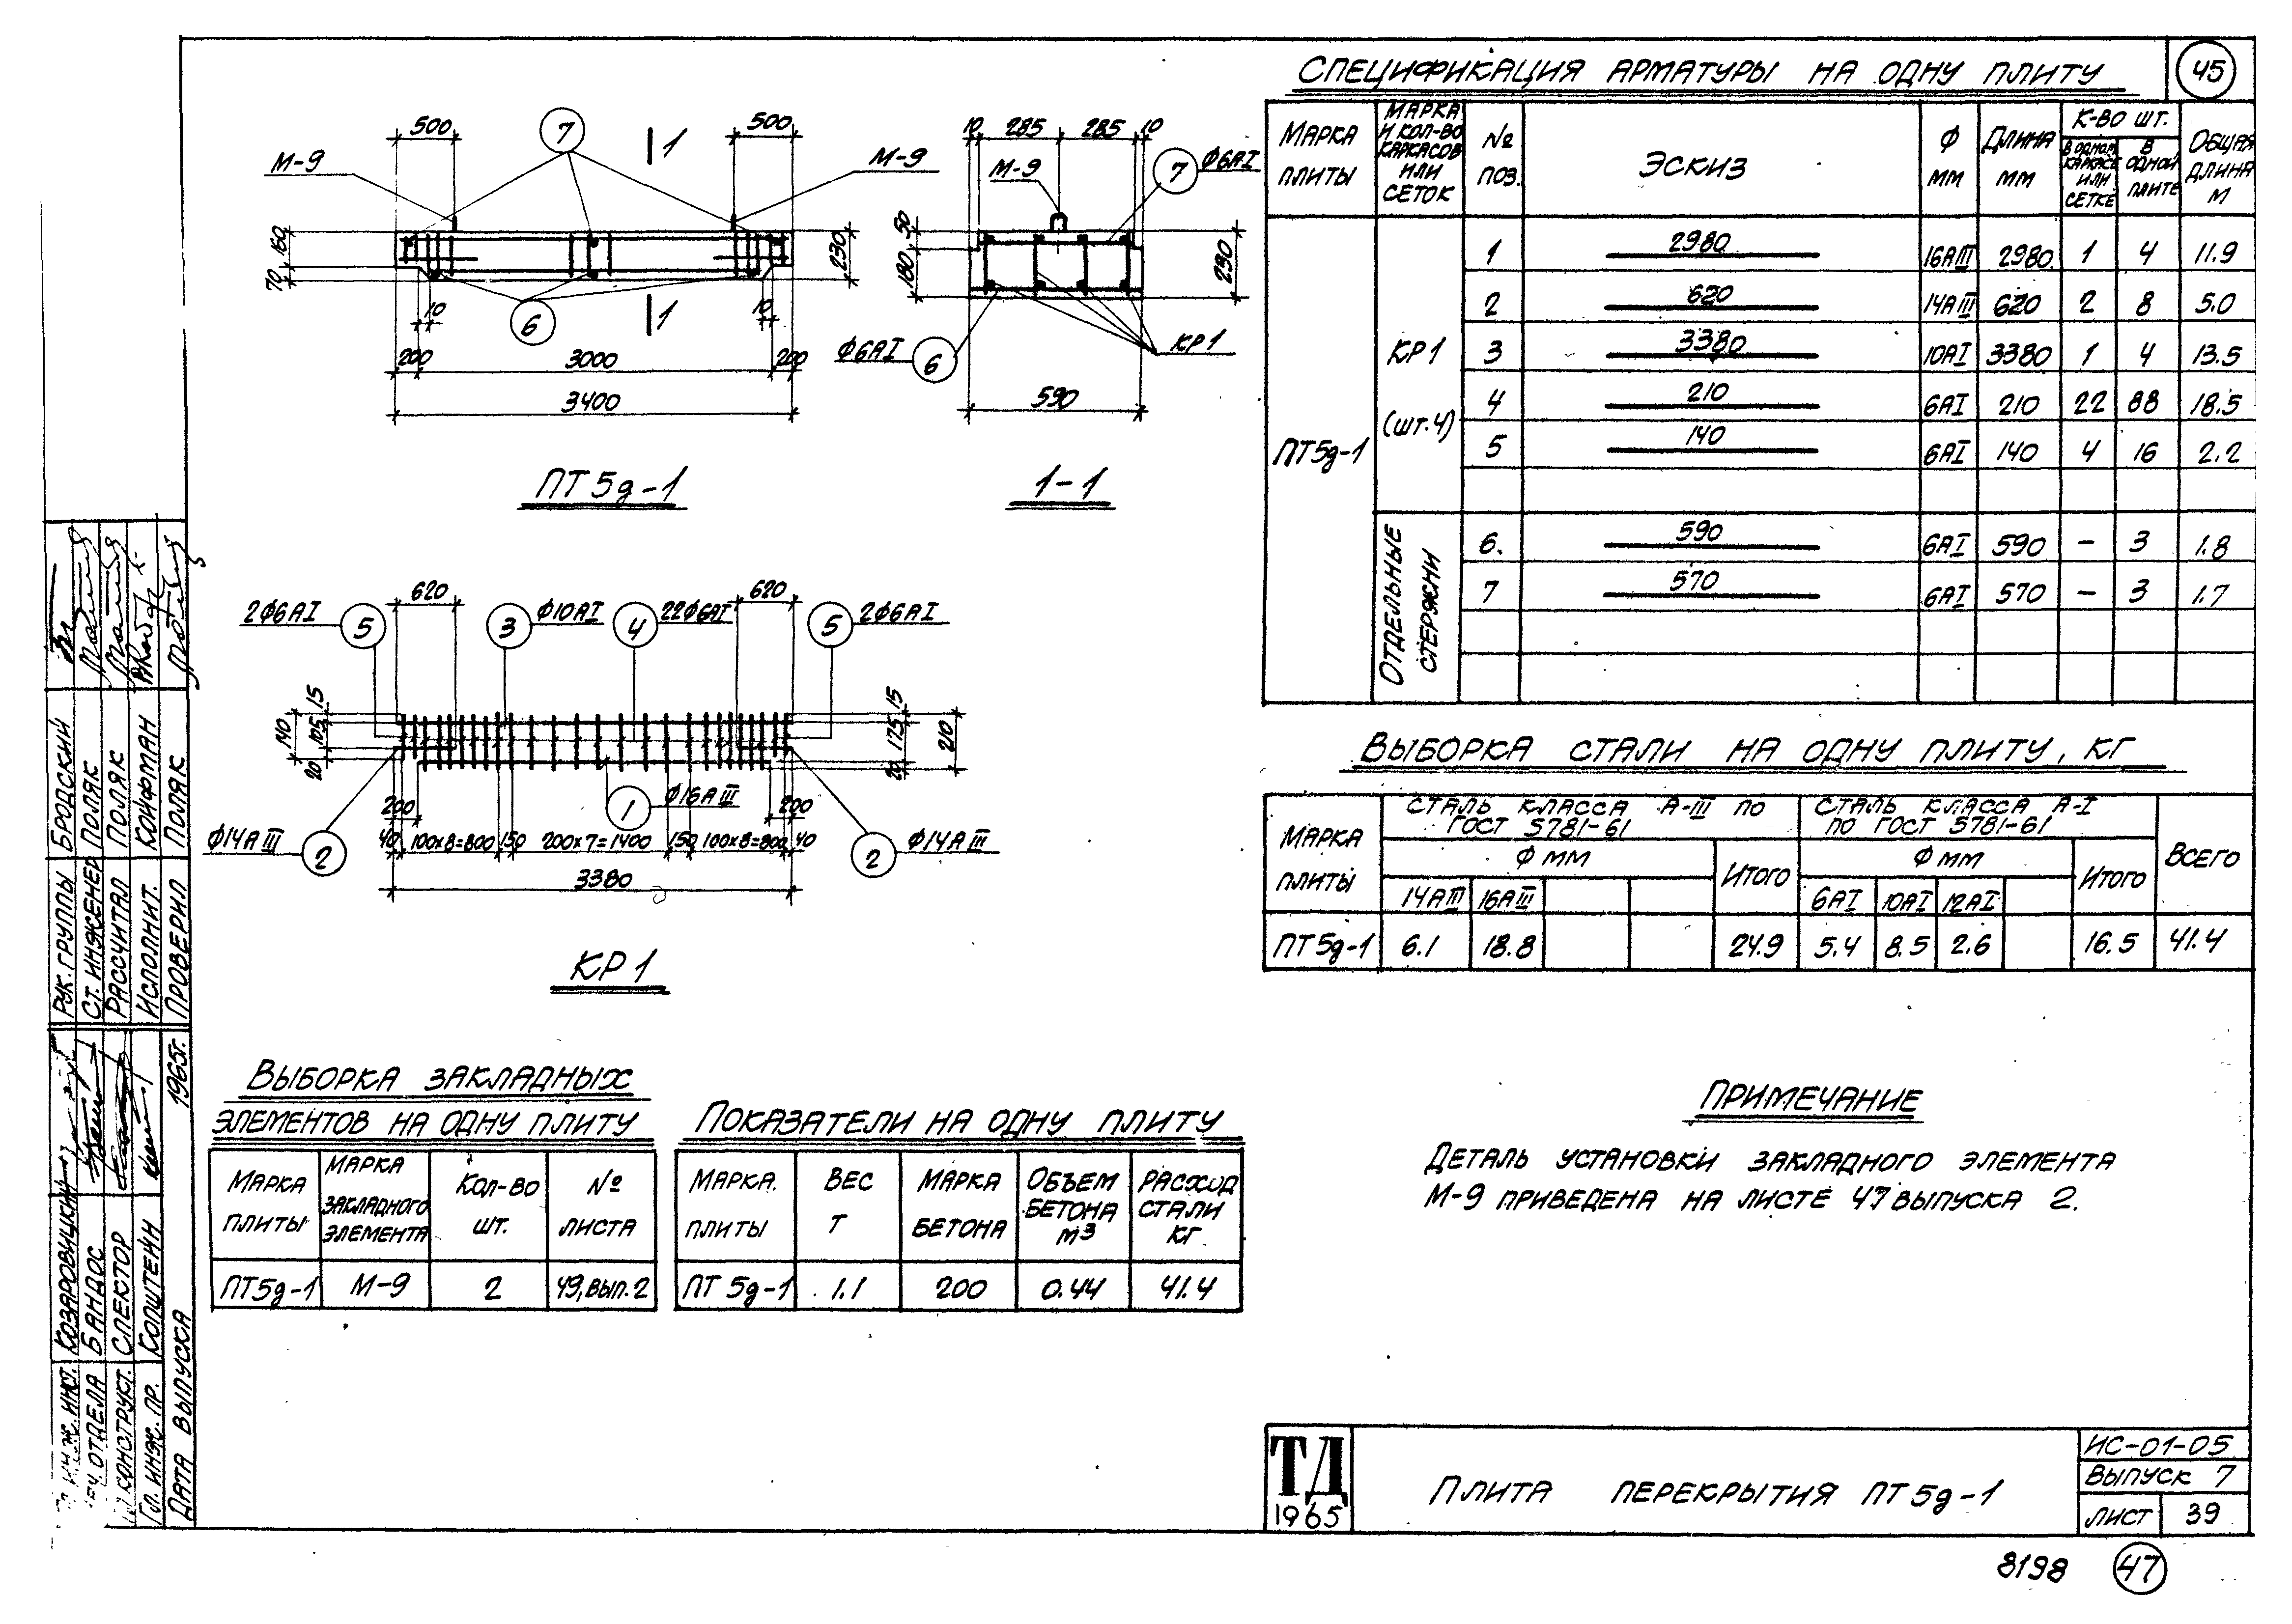 СПЕЦИФИКАЦИЯ АРМАТУРЫ НА ОДНУ ПЛИТУ
45
МАРКА ПЛИТЫ
МАРКА И КОЛ-ВО КАРКАСОВ ИЛИ СЕТОК
№ ПОЗ.
ЭСКИЗ
Ф ММ
ДЛИНА ММ
К-ВО ШТ.
В ОДНОМ КАРКАСЕ ИЛИ СЕТКЕ
В ОДНОЙ ПЛИТЕ
ОБЩАЯ ДЛИНА М
ПТ5д-1
КР1
(ШТ.4)
1 2980 16АIII 2980 1 4 11.9
2 620 14АIII 620 2 8 5.0
3 3380 10АI 3380 1 4 13.5
4 210 6АI 210 22 88 18.5
5 140 6АI 140 4 16 2.2
ОТДЕЛЬНЫЕ СТЕРЖНИ
6. 590 6АI 590 – 3 1.8
7 570 6АI 570 – 3 1.7
500 7 1 500
М-9 М-9
160 70 230
10 6 1 10
200 3000 200
3400
ПТ5д-1
10 285 285 10
М-9 7 Ф6АI
50 180 230
Ф6АI 6 КР1
590
1-1
620 620
2Ф6АI 5 3 Ф10АI 4 22Ф6АI 5 2Ф6АI
140 15 105 20
15 175 20 210
200 1 Ф16АIII 200
Ф14АIII 2 40 100х8=800 150 200х7=1400 150 100х8=800 40 2 Ф14АIII
3380
КР1
ВЫБОРКА СТАЛИ НА ОДНУ ПЛИТУ, КГ
МАРКА ПЛИТЫ
СТАЛЬ КЛАССА А-III ПО ГОСТ 5781-61
СТАЛЬ КЛАССА А-I ПО ГОСТ 5781-61
ВСЕГО
Ф ММ ИТОГО Ф ММ ИТОГО
14АIII 16АIII 6АI 10АI 12АI
ПТ5д-1 6.1 18.8 24.9 5.4 8.5 2.6 16.5 41.4
ВЫБОРКА ЗАКЛАДНЫХ
ЭЛЕМЕНТОВ НА ОДНУ ПЛИТУ
МАРКА ПЛИТЫ
МАРКА ЗАКЛАДНОГО ЭЛЕМЕНТА
КОЛ-ВО ШТ.
№ ЛИСТА
ПТ5д-1 М-9 2 49, ВЫП.2
ПОКАЗАТЕЛИ НА ОДНУ ПЛИТУ
МАРКА ПЛИТЫ
ВЕС Т
МАРКА БЕТОНА
ОБЪЕМ БЕТОНА М3
РАСХОД СТАЛИ КГ
ПТ 5д-1 1.1 200 0.44 41.4
ПРИМЕЧАНИЕ
ДЕТАЛЬ УСТАНОВКИ ЗАКЛАДНОГО ЭЛЕМЕНТА
М-9 ПРИВЕДЕНА НА ЛИСТЕ 47 ВЫПУСКА 2.
ТД
1965
ПЛИТА ПЕРЕКРЫТИЯ ПТ5д-1
ИС-01-05
ВЫПУСК 7
ЛИСТ 39
8198 47
РУК. ГРУППЫ БРОДСКИЙ
СТ. ИНЖЕНЕР ПОЛЯК
РАССЧИТАЛ ПОЛЯК
ИСПОЛНИТ. КОЙФМАН
ПРОВЕРИЛ ПОЛЯК
ИНЖ. ИНСТ. КОЗАРОВИЦКИЙ
ОТДЕЛА БАНДОС
КОНСТРУКТ. СПЕКТОР
ГЛ. ИНЖ. ПР. КОПШТЕЙН
ДАТА ВЫПУСКА 1965г.